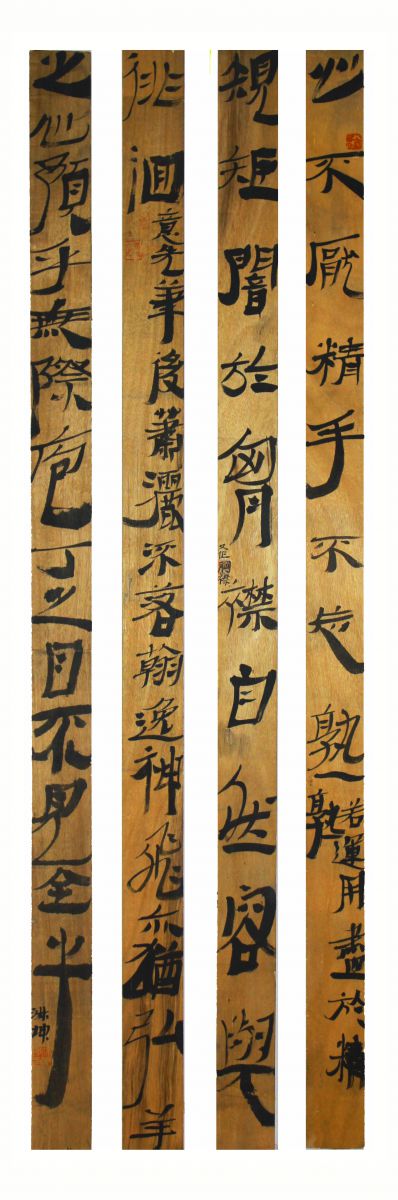 心不厭精手不忘熟若運用盡於精熟
規矩闇於胷襟自然容與
徘洄意先筆後蕭灑流落翰逸神飛亦猶弘羊
之心預乎無際庖丁之目不見全牛